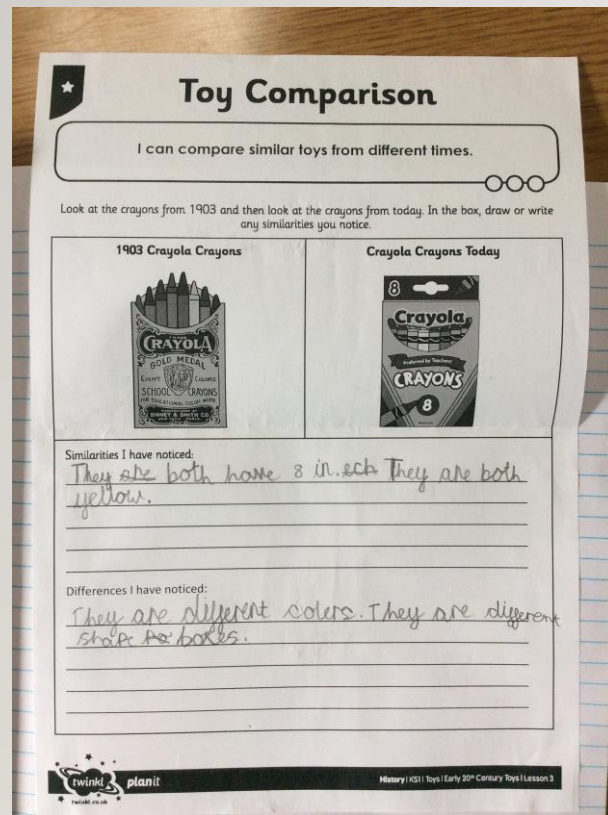 Toy Comparison
I can compare similar toys from different times.
Look at the crayons from 1903 and then look at the crayons from today. In the box, draw or write
any similarities you notice.
1903 Crayola Crayons
Crayola Crayons Today
CRAYOLA
GOLD MEDAL
EIGHT COLORS
SCHOOL CRAYONS
FOR EDUCATIONAL COLOR WORK
BINNEY & SMITH CO.
8
Crayola
Preferred by Teachers!
CRAYONS
8
Similarities I have noticed:
They are both have 8 in. ech They are both
yellow.
Differences I have noticed:
They are different colers. They are different
shape boxes.
twinkl planit
twinkl.co.uk
History | KS1 | Toys | Early 20th Century Toys | Lesson 3